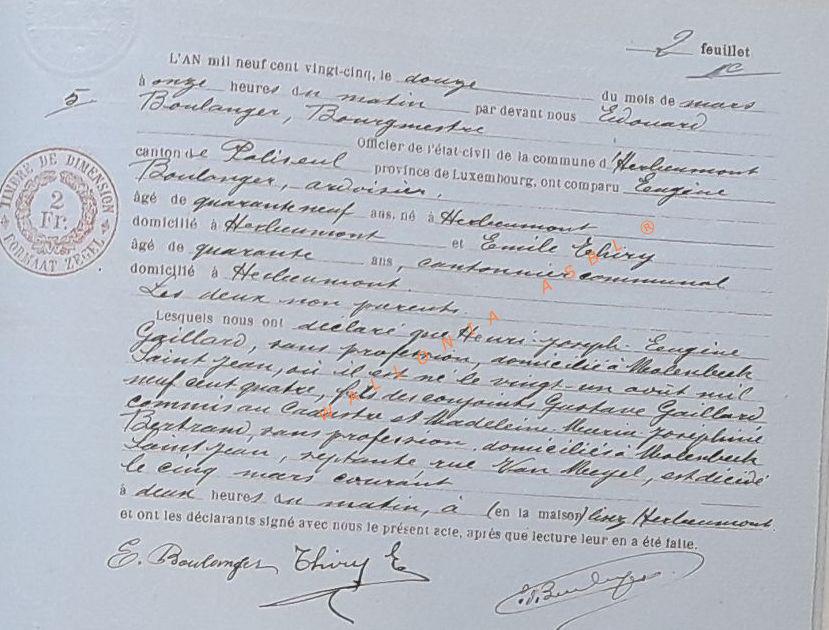 2 feuillet
L'AN mil neuf cent vingt-cinq, le douze du mois de mars
5
à onze heures du matin par devant nous Edouard
Boulanger, Bourgmestre
Officier de l'état-civil de la commune d'Herbeumont
canton de Paliseul province de Luxembourg, ont comparu Eugène
Boulanger, ardoisier,
âgé de quarante neuf ans, né à Herbeumont
domicilié à Herbeumont et Emile Thiry
âgé de quarante ans, cantonnier communal
domicilié à Herbeumont.
Les deux non parents
Lesquels nous ont déclaré que Henri-Joseph-Eugène
Gaillard, sans profession, domicilié à Molenbeek
Saint Jean, où il est né le vingt-un août mil
neuf cent quatre, fils des conjoints Gustave Gaillard
commis au Cadastre et Madeleine Maria Joséphine
Bertrand, sans profession, domiciliés à Molenbeek
Saint Jean, septante rue Van Meyel, est décédé
le cinq mars courant
à deux heures du matin, à (en la maison) Herbeumont.
et ont les déclarants signé avec nous le présent acte, après que lecture leur en a été faite.
E. Boulanger Thiry E Ed. Boulanger
TIMBRE DE DIMENSION
2
Fr.
FORMAAT ZEGEL
WALLONIA ASBL ®